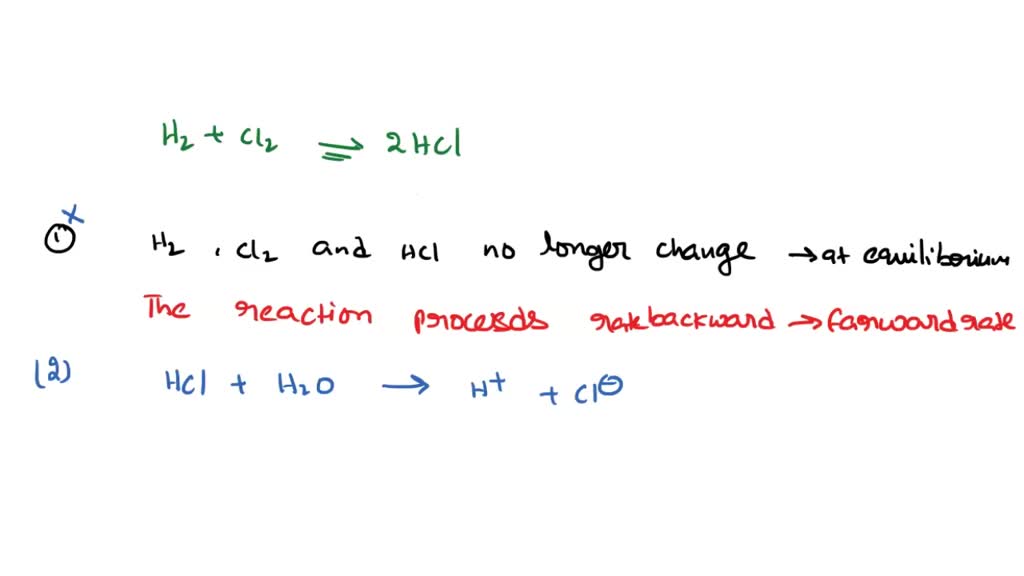 H₂ + Cl₂ ⇌ 2HCl
① x H₂ , Cl₂ and HCl no longer change → at equiliborium
The reaction proceeds rate backward → farward rate
(2) HCl + H₂O → H⁺ + Cl⊖